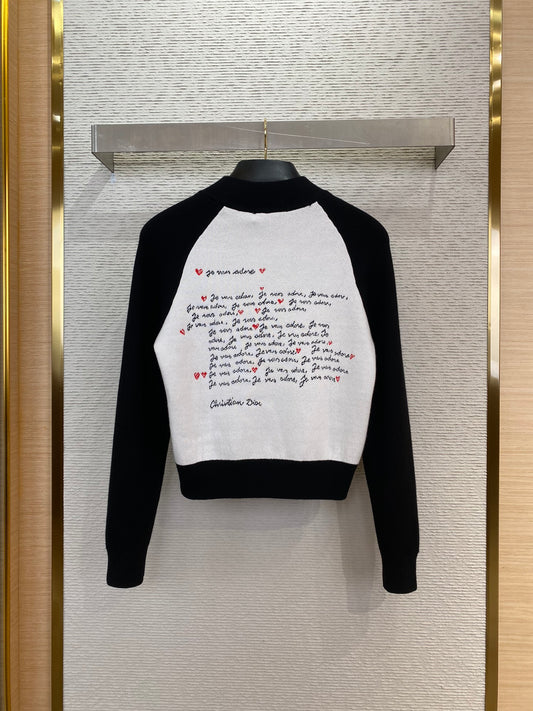 Je vous adore
Je vous adore, Je vous adore, Je vous adore,
Je vous adore, Je vous adore, Je vous adore,
Je vous adore, Je vous adore,
Je vous adore, Je vous adore,
Je vous adore Je vous adore, Je vous
adore, Je vous adore, Je vous adore, Je
vous adore, Je vous adore, Je vous adore,
Je vous adore, Je vous adore Je vous adore
Je vous adore, Je vous adore, Je vous adore
Je vous adore, Je vous adore, Je vous adore
Je vous adore, Je vous adore, Je vous adore
Christian Dior